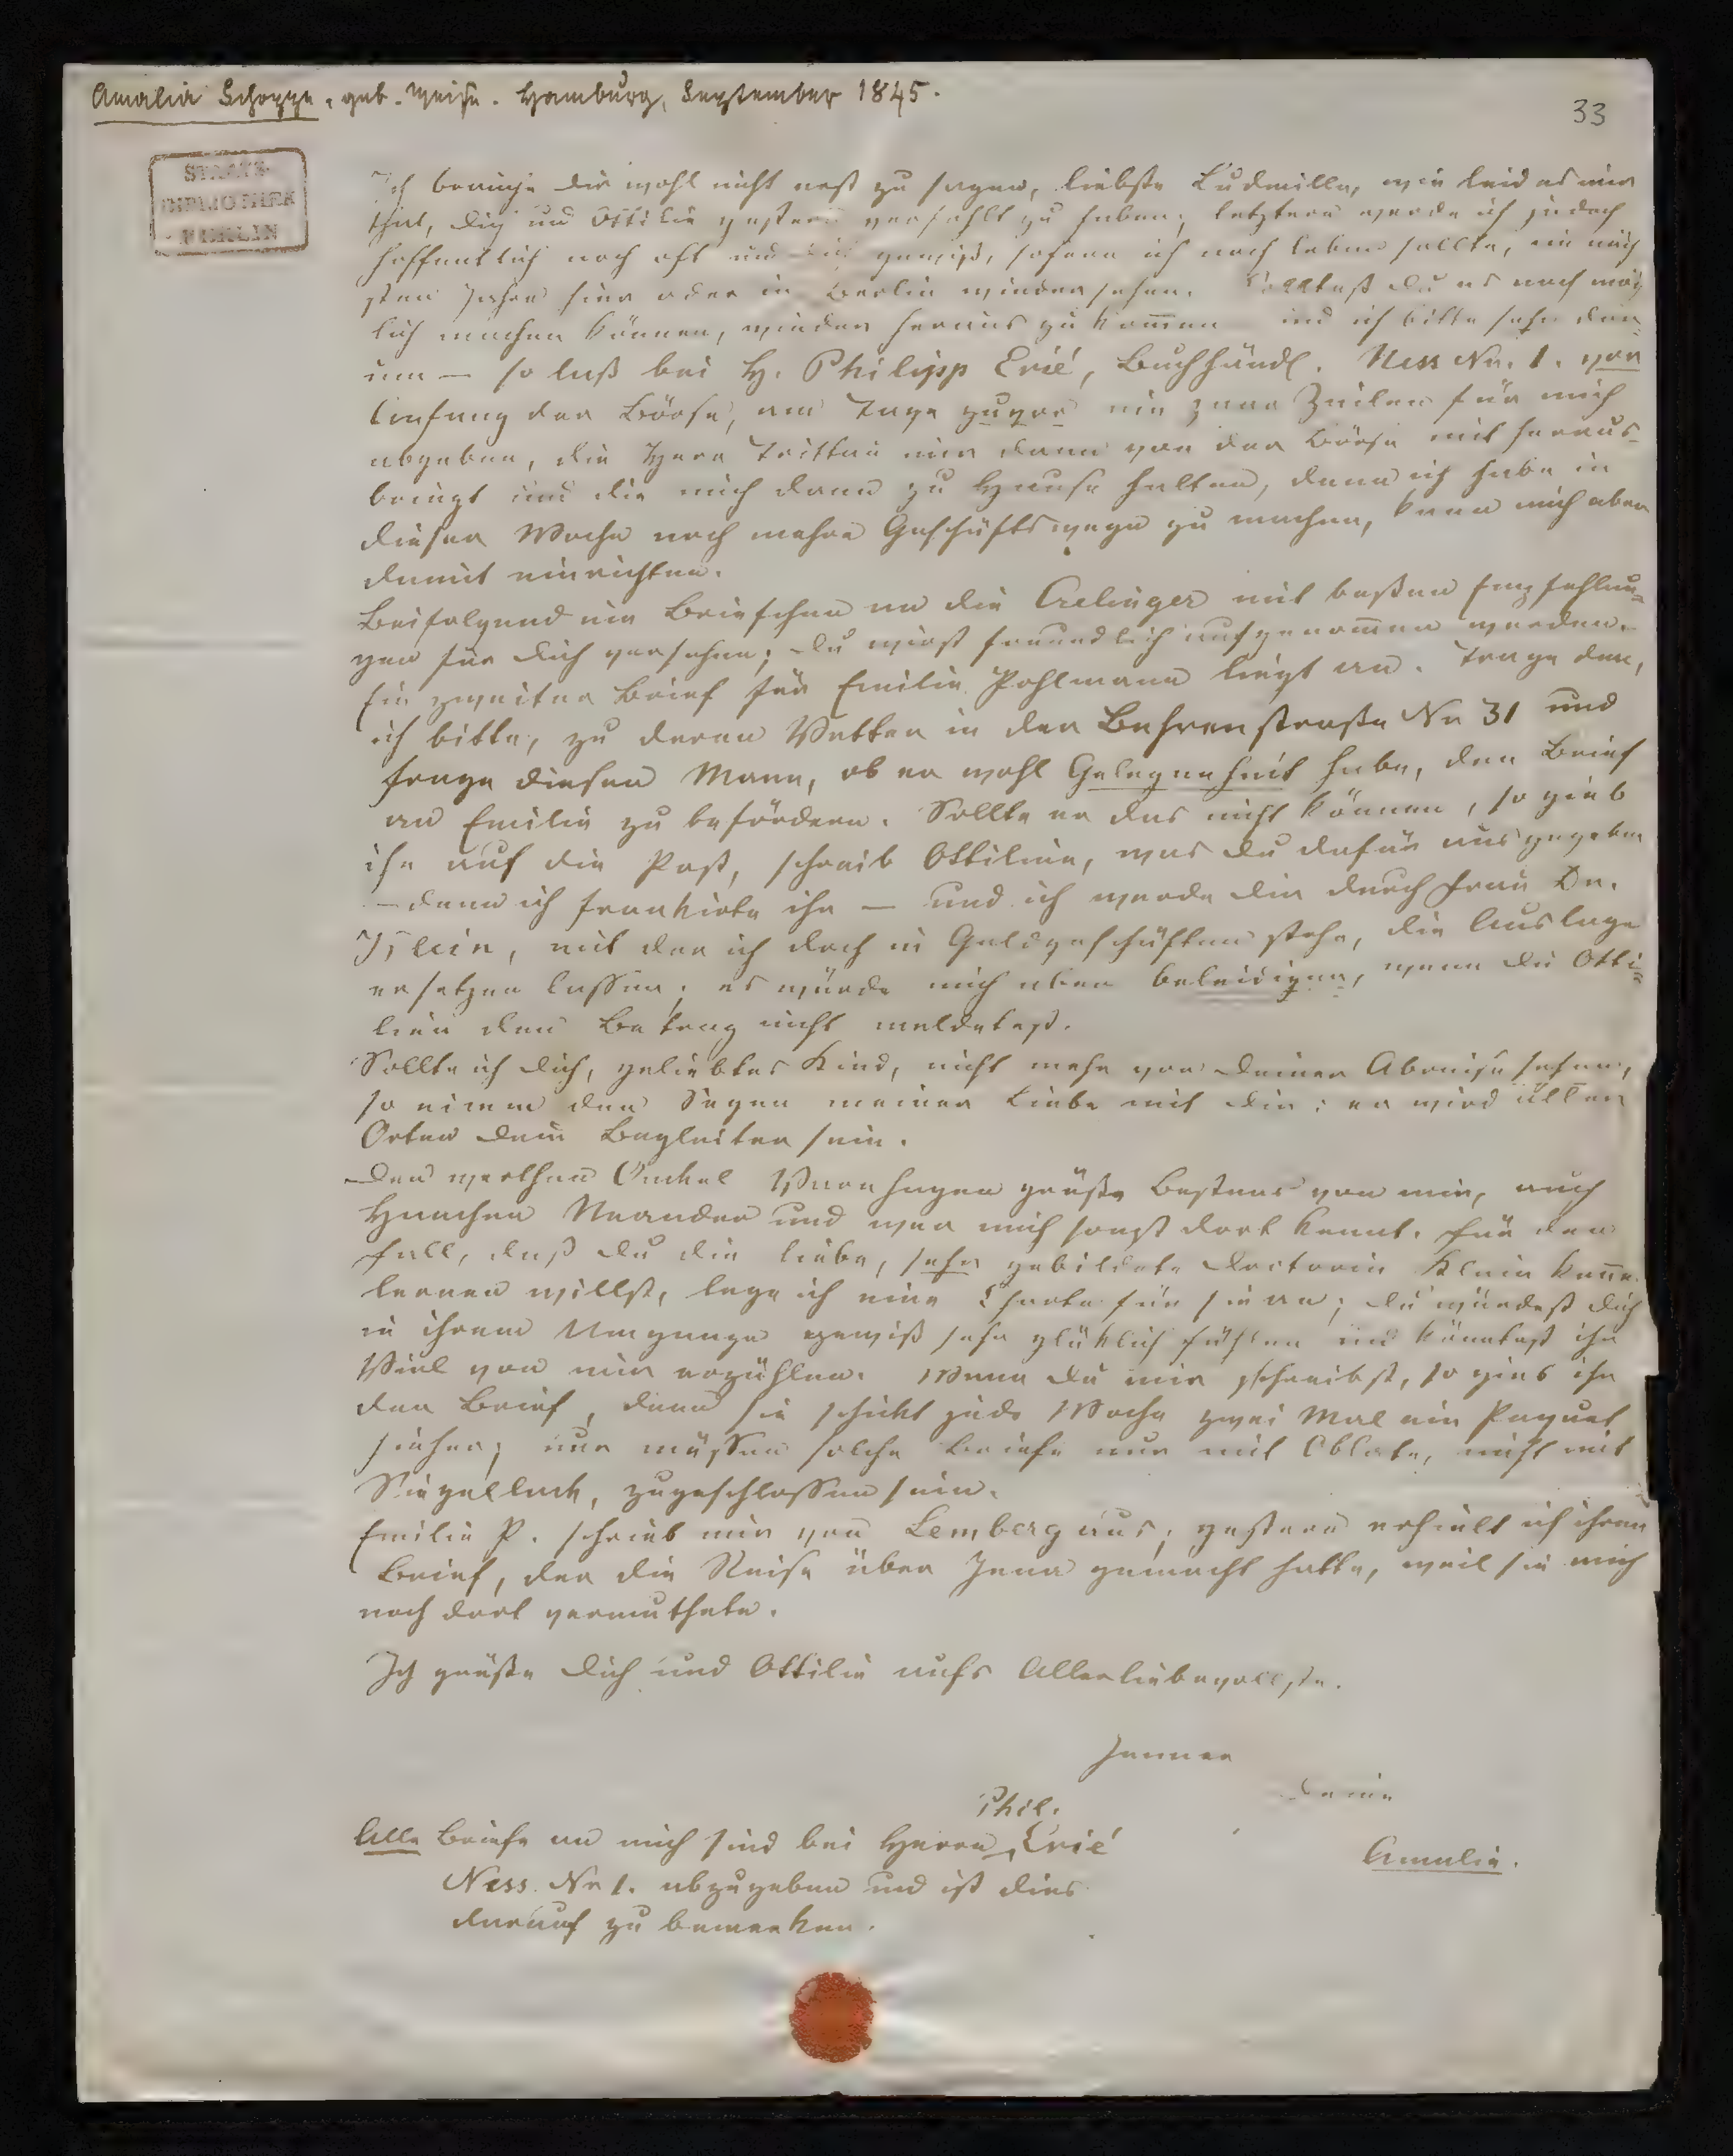 Amalia Schoppe, geb. Weise. Hamburg, September 1845.
33
STAATS-
BIBLIOTHEK
BERLIN
Ich brauche dir wohl nicht erst zu sagen, liebste Ludmilla, wie leid es mir
thut, dich und Ottilie gestern verfehlt zu haben; letztere werde ich jedoch
hoffentlich noch oft und dich gewiß, sofern ich noch leben sollte, im näch
sten Jahre hier oder in Berlin wiedersehen. Solltest du es noch mög
lich machen können, wieder heraus zu kom̅en und ich bitte sehr dar=
um — so laß bei H. Philipp Erié, Buchhändl. Ness No. 1. vor
Anfang der Börse, am Tage zuvor ein paar Zeilen für mich
abgeben, die Herr Trittau mir dann von der Börse mit heraus=
bringt und die mich dann zu Hause halten, denn ich habe in
dieser Woche noch mehre Geschäftswege zu machen, kann mich aber
damit einrichten.
Beifolgend ein Briefchen an die Crelinger mit besten Empfehlun=
gen für dich versehen; du wirst freundlich aufgenom̅en werden.
Ein zweiter Brief für Emilie Pohlmann liegt an. Trage den,
ich bitte, zu deren Vetter in der Behrenstraße No 31 und
frage diesen Mann, ob er wohl Gelegenheit habe, den Brief
an Emilie zu befördern. Sollte er das nicht können, so gieb
ihn auf die Post, schreib Ottilien, was du dafür ausgegeben
— denn ich frankirte ihn — und ich werde dir durch Frau Dr.
Klein, mit der ich doch in Geldgeschäften stehe, die Auslage
ersetzen lassen; es würde mich aber beleidigen, wenn du Otti=
lien den Betrag nicht meldetest.
Sollte ich dich, geliebtes Kind, nicht mehr vor deiner Abreise sehen,
so nimm den Segen meiner Liebe mit dir; er wird aller
Orten dein Begleiter sein.
Den werthen Onkel Varnhagen grüße bestens von mir, auch
Hännchen Neander und wer mich sonst dort kennt. Für den
Fall, daß du die liebe, sehr gebildete Doctorin Klein ken̅en
lernen willst, lege ich eine Charte für sie an; du würdest dich
in ihrem Umgange gewiß sehr glüklich fühlen und könntest ihr
Viel von mir erzählen. Wenn du mir schreibst, so gieb ihr
den Brief, denn sie schickt jede Woche zwei Mal ein Paquet
hieher; nur müssen solche Briefe nur mit Oblate, nicht mit
Siegellack, zugeschlossen sein.
Emilie P. schrieb mir von Lemberg aus; gestern erhielt ich ihren
Brief, der die Reise über Jena gemacht hatte, weil sie mich
noch dort vermuthete.
Ich grüße dich und Ottilie aufs Allerliebevollste.
Immer
Deine
Amalie.
Alle Briefe an mich sind bei Herrn Phil. Erié
Ness No 1. abzugeben und ist dies
darauf zu bemerken.